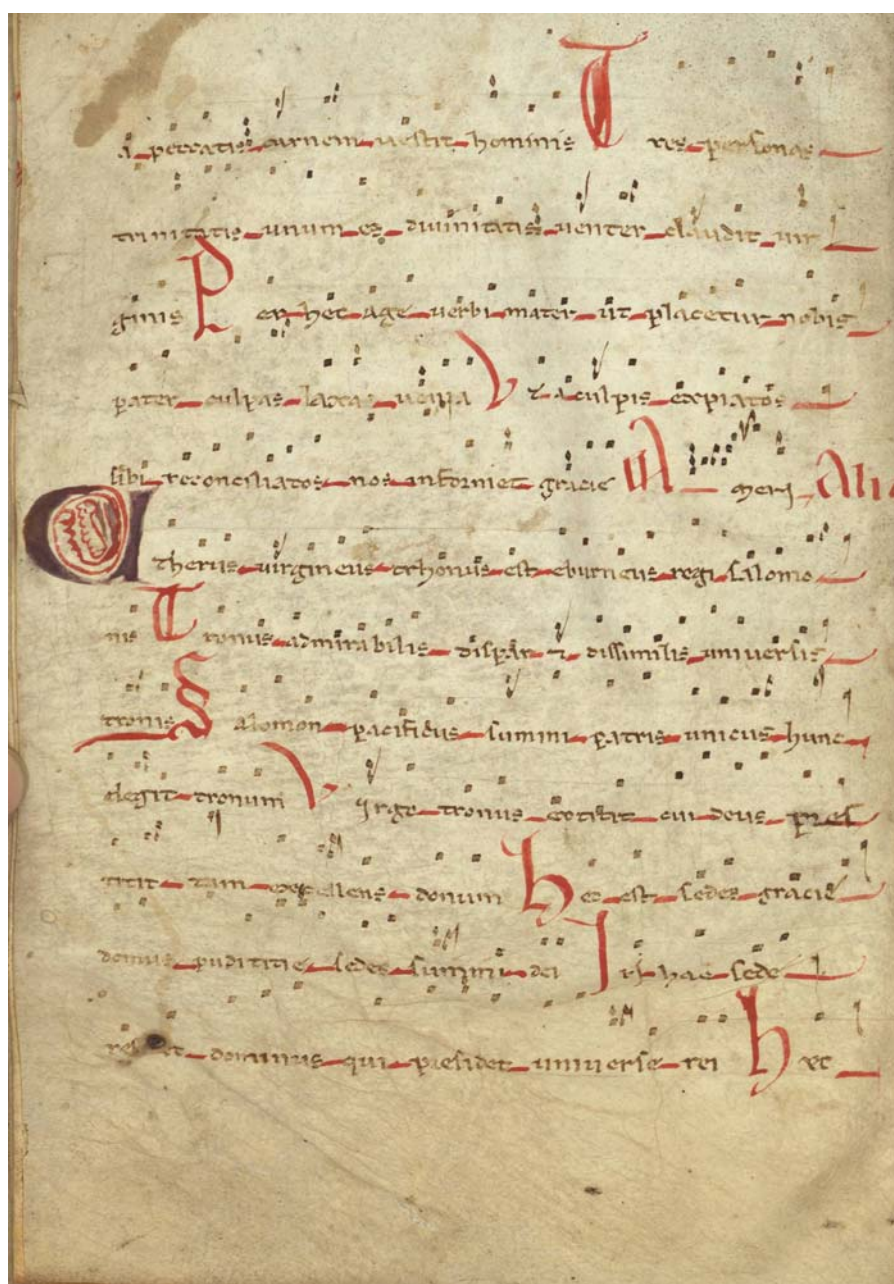 a peccatis carnem vestit hominis Tres personas
trinitatis unum es divinitatis venter claudit vir
ginis Per hec age verbi mater ut placetur nobis
pater culpas laxas
Ut a culpis expiatos
sibi reconciliatos nos informet gracie A meri Ali
therus virgineus trhonus est eburneus regi salomo
nis Tronus admirabilis dispar & dissimilis universis
tronis Salomon pacificus summi patris unicus hunc
elegit tronum Virgo tronus cui deus pres
titit tam excellens donum hec est sedes gracie
domus pudititie sedes summi dei In hac sede
et dominus qui presidet universe rei hec